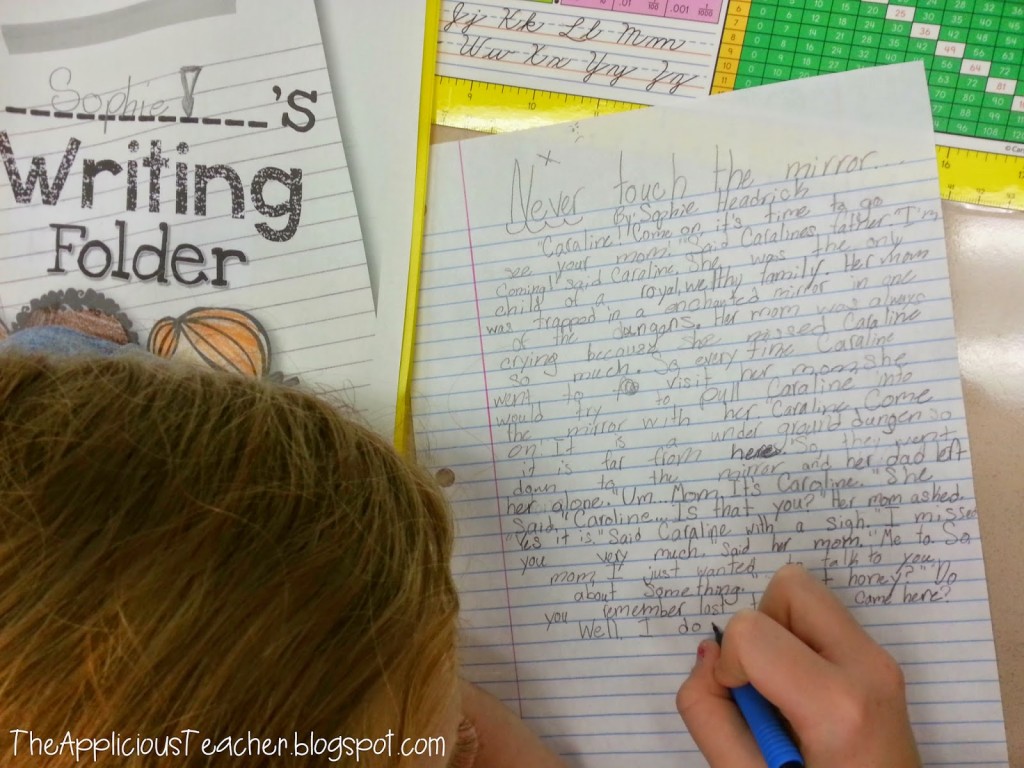 Sophie!
's
Writing
Folder
Jj Kk Ll Mm
Ww Xx Yy Zz
.01
.001
Never touch the mirror...
By: Sophie Headrich
"Caraline! Come on, it's time to go
see your mom." Said Caralines father. "I'm
Coming! said Caraline. She was the only
child of a royal, welthy family. Her mom
was trapped in a enchanted mirror in one
of the dungans. Her mom was always
crying because she missed Caraline
so much. So every time Caraline
went to visit her mom, she
would try to pull Caraline into
the mirror with her. "Caraline Come
on! It is a under ground dungen so
it is far from here. So, they went
down to the mirror and her dad left
her alone. "Um... Mom, It's Caroline." She
Said. "Caroline... Is that you?" Her mom asked.
"Yes it is." Said Caraline with a sigh. "I missed
you very much. said her mom. "Me to. So
mom, I just wanted to talk to you
about Something. I honey?" "Do
you remember last came here?
Well. I do
TheAppliciousTeacher.blogspot.com